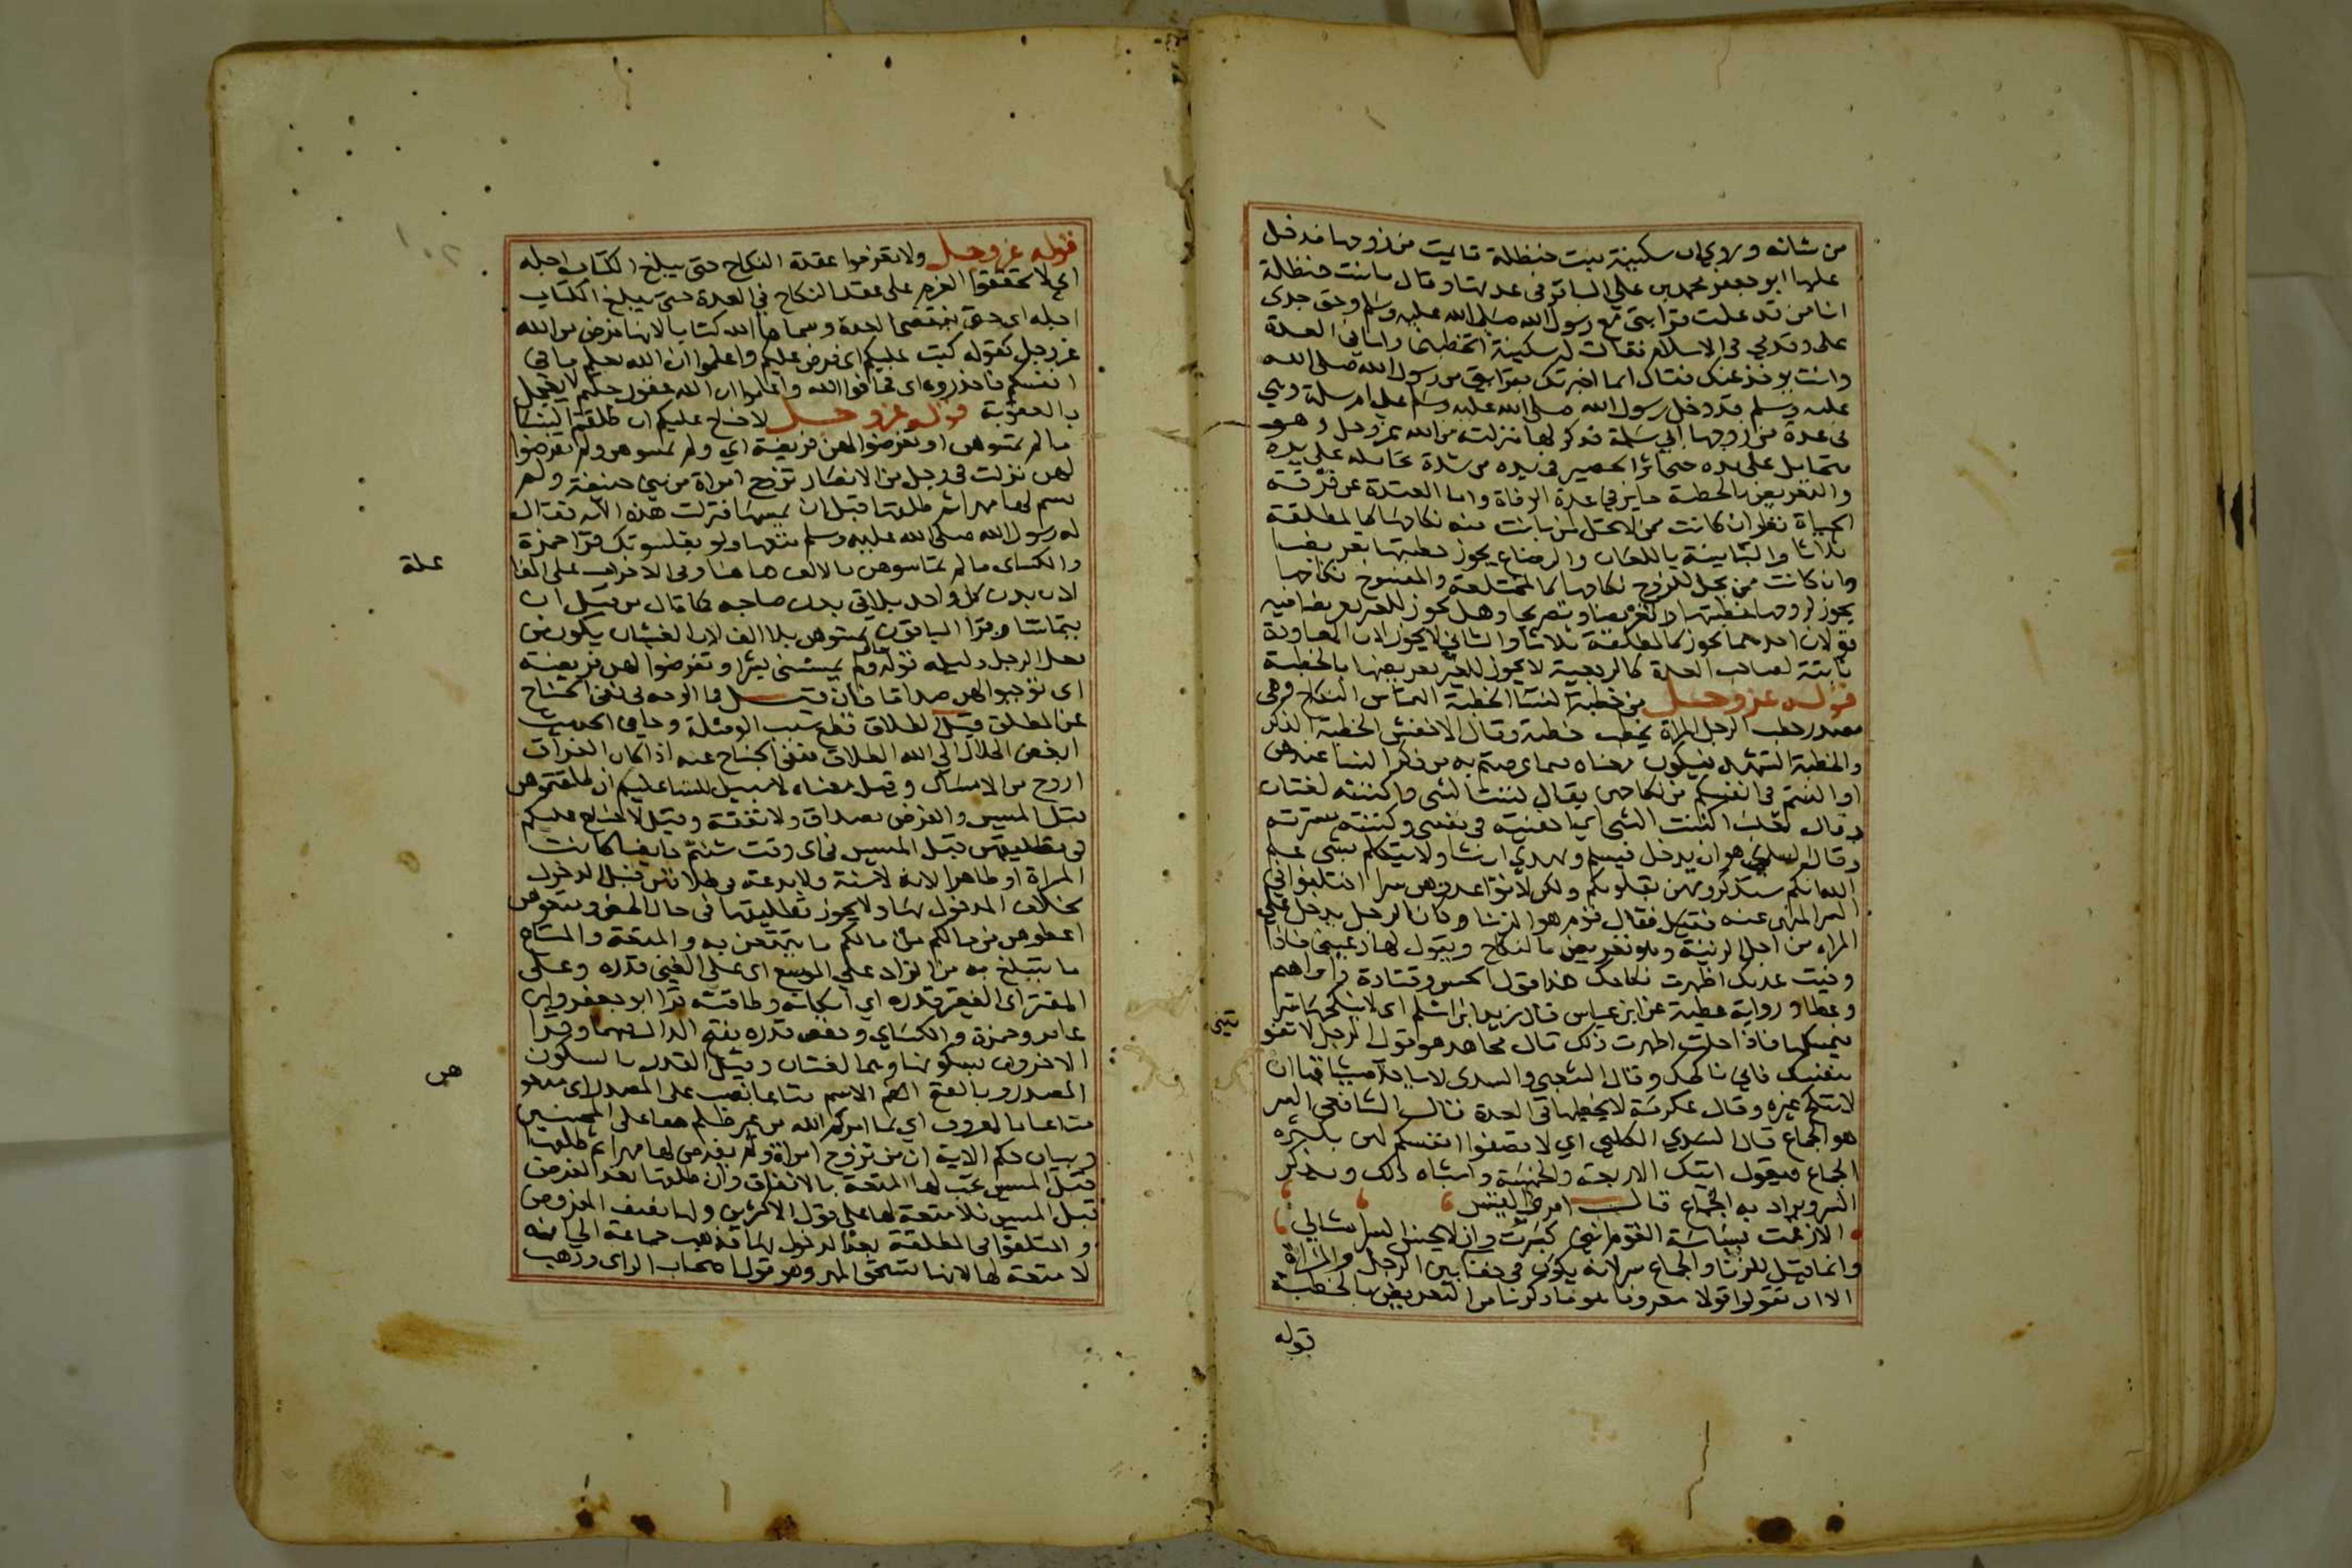 من شانه وروي ان سكينة بنت حنظلة تايمت من زوجها فدخل
عليها ابو جعفر محمد بن علي الباقر في عدتها وقال يا بنت حنظلة
انا من قد علمت قرابتي مع رسول الله صلى الله عليه وسلم وحق جدى
على وقدمي في الاسلام فقالت له سكينة اتخطبني وانا في العدة
وانت يوخذ عنك فقال انما اخبرتك بقرابتي من رسول الله صلى الله
عليه وسلم قد دخل رسول الله صلى الله عليه وسلم على ام سلمة وهي
في عدة من زوجها ابي سلمة فذكر لها منزلته من الله عز وجل وهو
متحامل على يده حتى اثر الحصير في يده من شدة تحامله على يده
والتعريض بالخطبة جايز في عدة الوفاة واما المعتدة عن فرقة
الحياة نظر ان كانت ممن لا تحل لمن بانت منه نكاحها كالمطلقة
ثلاثا والبائنة باللعان والرضاع يجوز خطبتها تعريضا
وان كانت ممن يحل للزوج نكاحها كالمختلعة والمفسوخ نكاحها
يجوز لزوجها خطبتها تعريضا وتصريحا وهل يجوز للغير تعريضا فيه
قولان احدهما يجوز كالمطلقة ثلاثا والثاني لا يجوز لان المعاودة
ثابتة لصاحب العدة كالرجعية لا يجوز للغير تعريضها بالخطبة
قوله عز وجل من خطبة النسا الخطبة التماس النكاح وهي
مصدر خطب الرجل المراة يخطب خطبة وقال الاخفش الخطبة الذكر
والخطبة التشهد فيكون معناه فيما عرضتم به من ذكر النسا عندهن
او اكننتم في انفسكم من نكاحهن يقال كننت الشى واكننته لغتان
وقال ثعلب اكننت الشى اي اخفيته في نفسى وكننته سترته
وقال السدي هو ان يدخل فيسلم ويهدي ان شا ولا يتكلم بشى علم
الله انكم ستذكرونهن بقلوبكم ولكن لا تواعدوهن سرا اختلفوا في
السر المنهي عنه فقال قوم هو الزنا وكان الرجل يدخل على
المراه من اجل الزنية وهو يعرض بالنكاح ويقول لها دعيني فاذا
وفيت عدتك اظهرت نكاحك هذا قول الحسن وقتادة وابراهيم
وعطا ورواية عطية عن ابن عباس قال زيد ابن اسلم اى لا ينكحها سرا
فيمسكها فاذا حلت اظهرت ذلك قال مجاهد هو قول الرجل لا تفو
تيني
بنفسك فاني ناكحك وقال الشعبي والسدى لا ياخذ ميثاقها ان
لا تنكح غيره وقال عكرمة لا يخطبها في العدة قال الشافعي السر
هو الجماع قال الكلبي اي لا تصفوا انفسكم لهن بكثره
الجماع فيقول اتيك الاربعة والخمسة واشباه ذلك ويذكر
السر ويراد به الجماع قال امرؤ القيس
الا زعمت بسباسة القوم انني كبرت وان لا يحسن السر امثالي
وانما قيل للزنا والجماع سر لانه يكون في خفا بين الرجل والمراة
الا ان تقولوا قولا معروفا هو ما ذكرنا من التعريض بالخطبة
قوله
قوله عز وجل ولا تعزموا عقدة النكاح حتى يبلغ الكتاب اجله
اى لا تحققوا العزم على عقد النكاح في العدة حتى يبلغ الكتاب
اجله اي حتى تنقضى العدة وسماها الله كتابا لانها فرض من الله
عز وجل كقوله كتب عليكم اى فرض عليكم واعلموا ان الله يعلم ما في
انفسكم فاحذروه اى فخافوا الله واعلموا ان الله غفور حليم لا يعجل
بالعقوبة قوله عز وجل لا جناح عليكم ان طلقتم النسا
ما لم تمسوهن او تفرضوا لهن فريضة اي ولم تمسوهن ولم تفرضوا
لهن نزلت في رجل من الانصار تزوج امراة من بني حنيفة ولم
يسم لها مهرا ثم طلقها قبل ان يمسها فنزلت هذه الاية فقال
له رسول الله صلى الله عليه وسلم متعها ولو بقلنسوتك قرا حمزة
والكساى ما لم تماسوهن بالالف هاهنا وفي الاحزاب على المفا
علة
لان بدن كل واحد يلاقي بدن صاحبه كما قال من قبل ان
يتماسا وقرا الباقون تمسوهن بلا الف لان الغشيان يكون من
فعل الرجل دليله قوله ولم يمسسني بشر او تفرضوا لهن فريضة
اى توجبوا لهن صداقا فان قيل ما الوجه في نفي الجناح
عن المطلق قيل الطلاق قطع سبب الوصلة وجا في الحديث
ابغض الحلال الي الله الطلاق فنفى الجناح عنه اذا كان الفراق
اروح من الامساك وقيل معناه لا سبيل للنسا عليكم ان طلقتموهن
قبل المسيس والفرض بصداق ولا نفقة وقيل لا جناح عليكم
في تطليقهن قبل المسيس في اى وقت شئتم حايضا كانت
المراة او طاهرا لانه لا سنة ولا بدعة في طلاقهن قبل الدخول
بخلاف المدخول بها ولا يجوز تطليقها في حال الحيض ومتعوهن
اعطوهن من مالكم ما يتمتعن به والمتعة والمتاع
ما يتبلغ به من الزاد على الموسع اى على الغني قدره وعلى
المقتر اى الفقير قدره اي امكانه وطاقته قرا ابو جعفر وابن
عامر وحمزة والكساي وحفص قدره بفتح الدال فيهما وقرا
الاخرون بسكونها وهما لغتان وقيل القدر بالسكون
المصدر وبالفتح الاسم متاعا نصب على المصدر اى متعو
هن
متاعا بالمعروف اي بما امركم الله من غير ظلم حقا على المحسنين
وبيان حكم الاية ان من تزوج امراة ولم يفرض لها مهرا ثم طلقها
قبل المسيس يجب لها المتعة بالاتفاق وان طلقها بعد الفرض
قبل المسيس فلا متعة لها على قول الاكثرين ولها نصف المفروض
واختلفوا في المطلقة بعد الدخول بها فذهب جماعة الي انه
لا متعة لها لانها تستحق المهر وهو قول اصحاب الراى وذهب